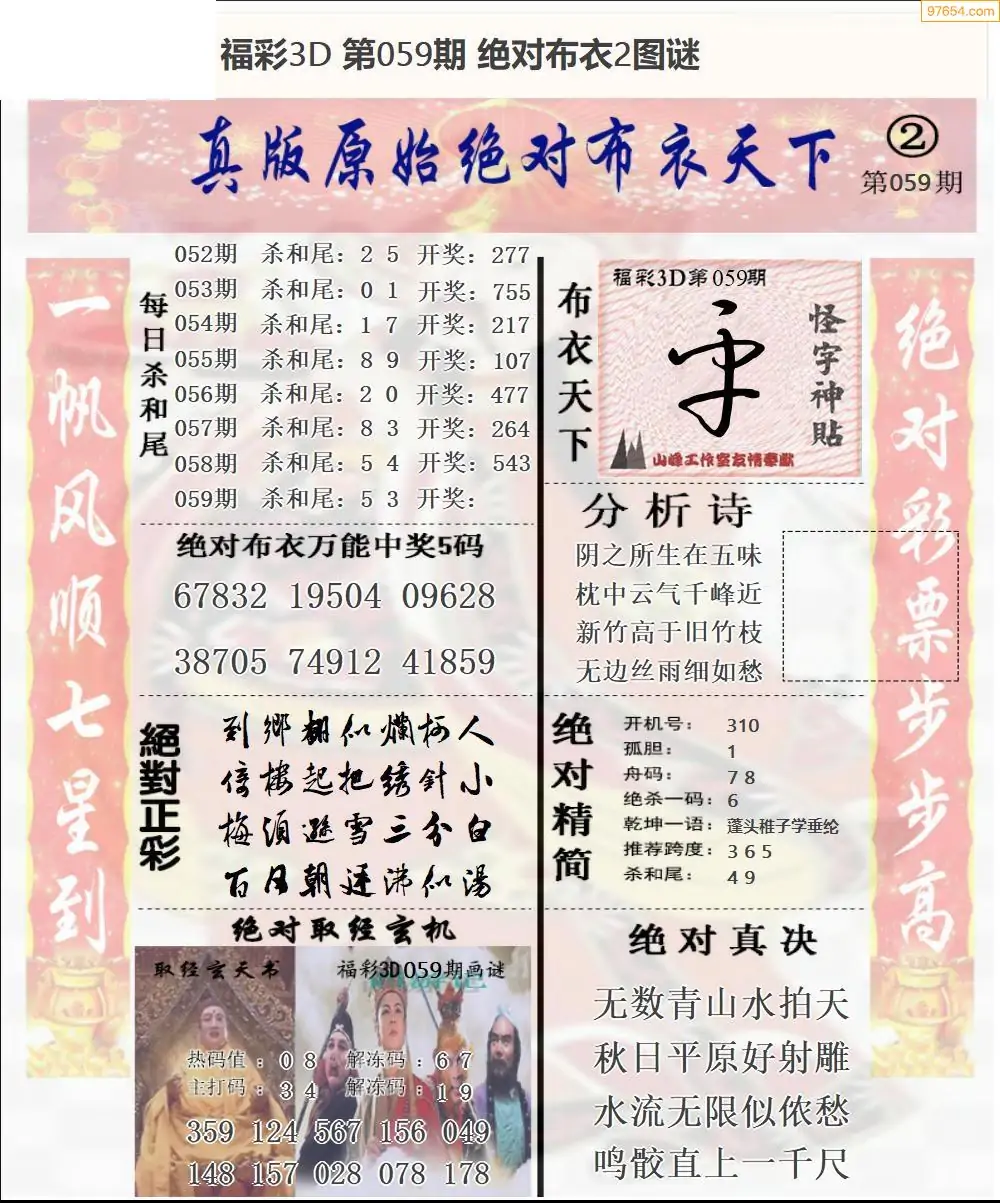 97654.com
福彩3D 第059期 绝对布衣2图谜
真版原始绝对布衣天下
②
第059期
一帆风顺七星到
每日杀和尾
052期 杀和尾：2 5 开奖：277
053期 杀和尾：0 1 开奖：755
054期 杀和尾：1 7 开奖：217
055期 杀和尾：8 9 开奖：107
056期 杀和尾：2 0 开奖：477
057期 杀和尾：8 3 开奖：264
058期 杀和尾：5 4 开奖：543
059期 杀和尾：5 3 开奖：
绝对布衣万能中奖5码
67832 19504 09628
38705 74912 41859
絕對正彩
到鄉翻似爛柯人
倚楼起把绣針小
梅須遜雪三分白
百月朝廷沸似湯
绝对取经玄机
取经玄天书
福彩3D059期画谜
热码值：0 8 解冻码：6 7
主打码：3 4 解冻码：1 9
359 124 567 156 049
148 157 028 078 178
布衣天下
福彩3D第059期
怪字神貼
山峰工作室友情奉献
分析诗
阴之所生在五味
枕中云气千峰近
新竹高于旧竹枝
无边丝雨细如愁
绝对精简
开机号：310
孤胆：1
舟码：7 8
绝杀一码：6
乾坤一语：蓬头稚子学垂纶
推荐跨度：3 6 5
杀和尾：4 9
绝对真决
无数青山水拍天
秋日平原好射雕
水流无限似侬愁
鸣骹直上一千尺
绝对彩票步步高